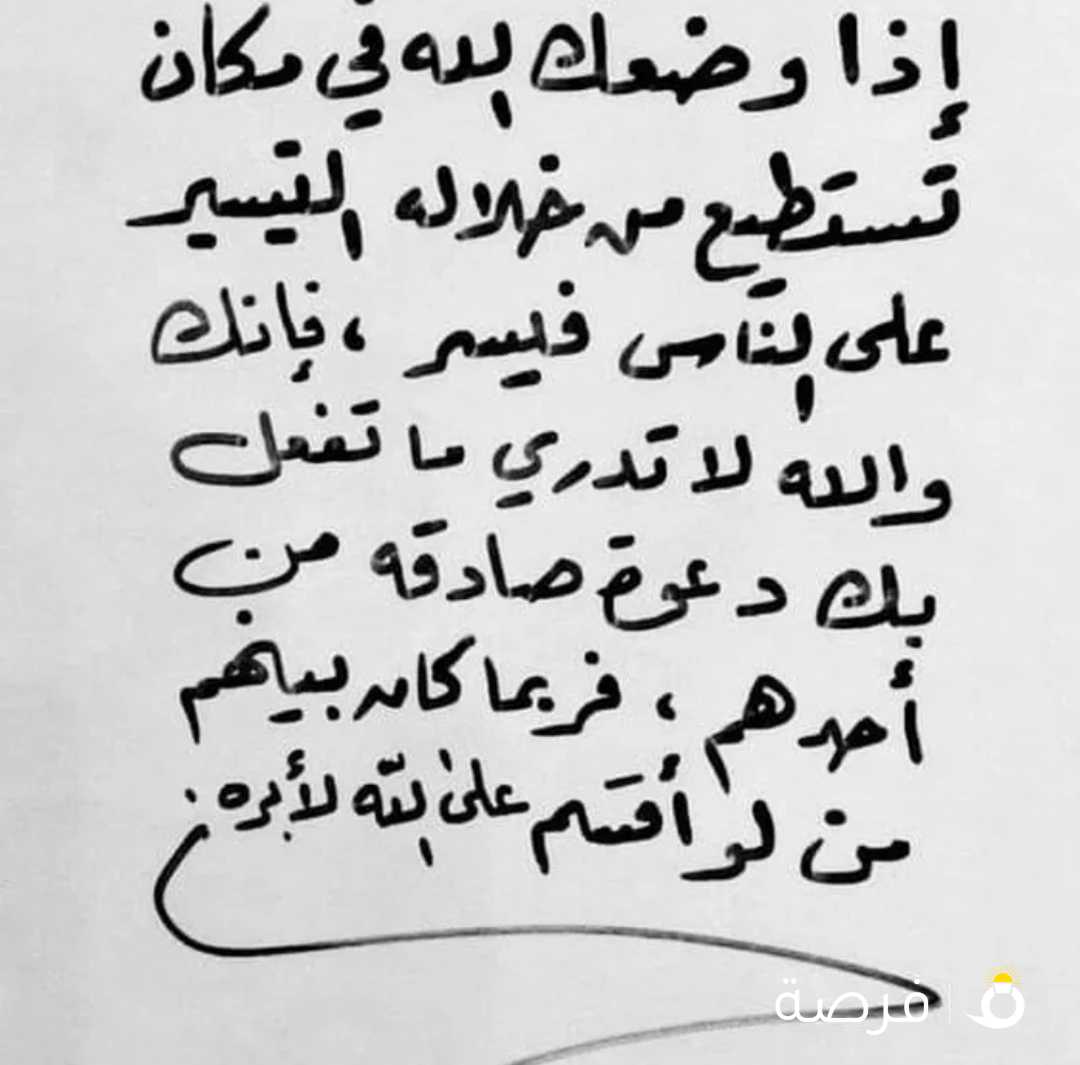 إذا وضعك الله في مكان
تستطيع من خلاله التيسير
على الناس فيسر ، فإنك
والله لا تدري ما تفعل
بك دعوة صادقه من
أحدهم ، فربما كان بينهم
من لو أقسم على اللّه لأبره .
فرصة